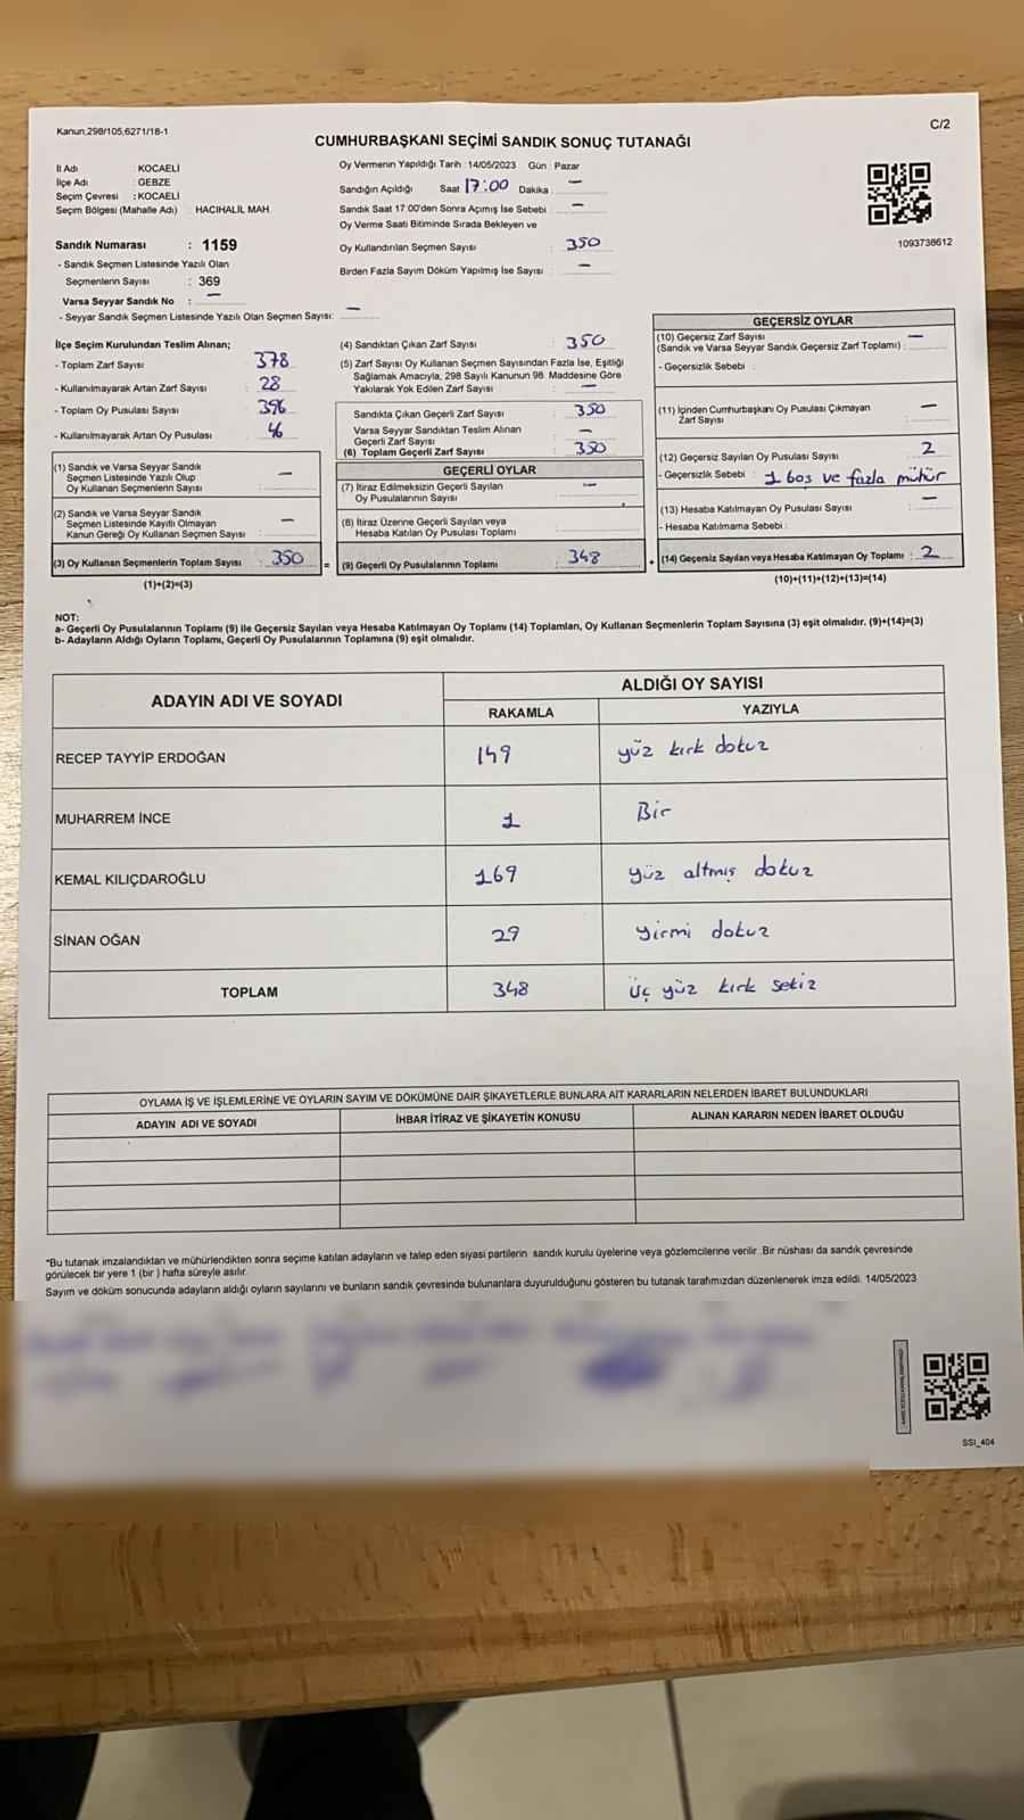 Kanun,298/105,6271/18-1
C/2
CUMHURBAŞKANI SEÇİMİ SANDIK SONUÇ TUTANAĞI
İl Adı : KOCAELİ
İlçe Adı : GEBZE
Seçim Çevresi : KOCAELİ
Seçim Bölgesi (Mahalle Adı) : HACIHALİL MAH.
Sandık Numarası : 1159
- Sandık Seçmen Listesinde Yazılı Olan
Seçmenlerin Sayısı : 369
Varsa Seyyar Sandık No : —
- Seyyar Sandık Seçmen Listesinde Yazılı Olan Seçmen Sayısı: —
Oy Vermenin Yapıldığı Tarih : 14/05/2023 Gün : Pazar
Sandığın Açıldığı Saat 17:00 Dakika : —
Sandık Saat 17:00'den Sonra Açımış İse Sebebi : —
Oy Verme Saati Bitiminde Sırada Bekleyen ve
Oy Kullandırılan Seçmen Sayısı : 350
Birden Fazla Sayım Döküm Yapılmış İse Sayısı : —
1093738612
İlçe Seçim Kurulundan Teslim Alınan;
- Toplam Zarf Sayısı : 378
- Kullanılmayarak Artan Zarf Sayısı : 28
- Toplam Oy Pusulası Sayısı : 396
- Kullanılmayarak Artan Oy Pusulası : 46
(1) Sandık ve Varsa Seyyar Sandık
Seçmen Listesinde Yazılı Olup
Oy Kullanan Seçmenlerin Sayısı : —
(2) Sandık ve Varsa Seyyar Sandık
Seçmen Listesinde Kayıtlı Olmayan
Kanun Gereği Oy Kullanan Seçmen Sayısı : —
(3) Oy Kullanan Seçmenlerin Toplam Sayısı : 350 =
(1)+(2)=(3)
(4) Sandıktan Çıkan Zarf Sayısı : 350
(5) Zarf Sayısı Oy Kullanan Seçmen Sayısından Fazla İse, Eşitliği
Sağlamak Amacıyla, 298 Sayılı Kanunun 98. Maddesine Göre
Yakılarak Yok Edilen Zarf Sayısı : —
Sandıkta Çıkan Geçerli Zarf Sayısı : 350
Varsa Seyyar Sandıktan Teslim Alınan
Geçerli Zarf Sayısı : —
(6) Toplam Geçerli Zarf Sayısı : 350
GEÇERLİ OYLAR
(7) İtiraz Edilmeksizin Geçerli Sayılan
Oy Pusulalarının Sayısı : —
(8) İtiraz Üzerine Geçerli Sayılan veya
Hesaba Katılan Oy Pusulası Toplamı :
(9) Geçerli Oy Pusulalarının Toplamı : 348 +
GEÇERSİZ OYLAR
(10) Geçersiz Zarf Sayısı
(Sandık ve Varsa Seyyar Sandık Geçersiz Zarf Toplamı) : —
- Geçersizlik Sebebi :
(11) İçinden Cumhurbaşkanı Oy Pusulası Çıkmayan
Zarf Sayısı : —
(12) Geçersiz Sayılan Oy Pusulası Sayısı : 2
- Geçersizlik Sebebi : 1 boş ve fazla mühür
(13) Hesaba Katılmayan Oy Pusulası Sayısı : —
- Hesaba Katılmama Sebebi :
(14) Geçersiz Sayılan veya Hesaba Katılmayan Oy Toplamı : 2
(10)+(11)+(12)+(13)=(14)
NOT:
a- Geçerli Oy Pusulalarının Toplamı (9) ile Geçersiz Sayılan veya Hesaba Katılmayan Oy Toplamı (14) Toplamları, Oy Kullanan Seçmenlerin Toplam Sayısına (3) eşit olmalıdır. (9)+(14)=(3)
b- Adayların Aldığı Oyların Toplamı, Geçerli Oy Pusulalarının Toplamına (9) eşit olmalıdır.
ADAYIN ADI VE SOYADI
ALDIĞI OY SAYISI
RAKAMLA YAZIYLA
RECEP TAYYİP ERDOĞAN 149 yüz kırk dokuz
MUHARREM İNCE 1 Bir
KEMAL KILIÇDAROĞLU 169 yüz altmış dokuz
SİNAN OĞAN 29 yirmi dokuz
TOPLAM 348 üç yüz kırk sekiz
OYLAMA İŞ VE İŞLEMLERİNE VE OYLARIN SAYIM VE DÖKÜMÜNE DAİR ŞİKAYETLERLE BUNLARA AİT KARARLARIN NELERDEN İBARET BULUNDUKLARI
ADAYIN ADI VE SOYADI İHBAR İTİRAZ VE ŞİKAYETİN KONUSU ALINAN KARARIN NEDEN İBARET OLDUĞU
*Bu tutanak imzalandıktan ve mühürlendikten sonra seçime katılan adayların ve talep eden siyasi partilerin sandık kurulu üyelerine veya gözlemcilerine verilir. Bir nüshası da sandık çevresinde
görülecek bir yere 1 (bir ) hafta süreyle asılır.
Sayım ve döküm sonucunda adayların aldığı oyların sayılarını ve bunların sandık çevresinde bulunanlara duyurulduğunu gösteren bu tutanak tarafımızdan düzenlenerek imza edildi. 14/05/2023
SSI_404